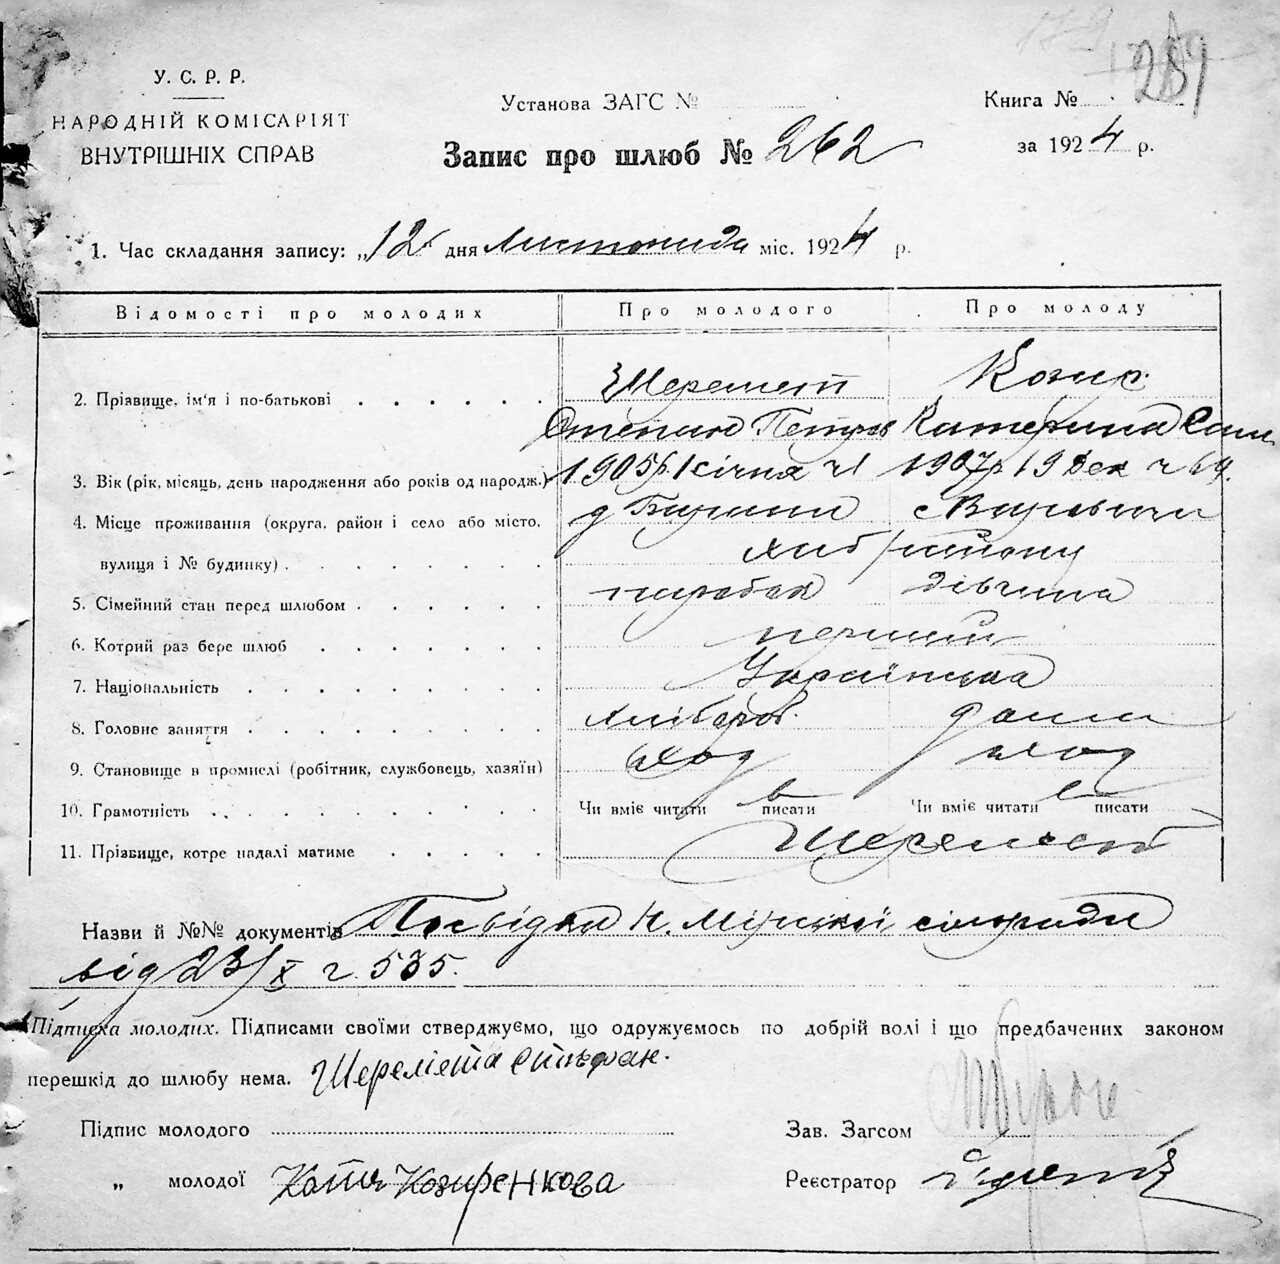 289
У. С. Р. Р.
НАРОДНІЙ КОМІСАРІЯТ
ВНУТРІШНІХ СПРАВ
Установа ЗАГС №
Книга №
Запис про шлюб № 262
за 1924 р.
1. Час складання запису: „12" дня листопада міс. 1924 р.
Відомості про молодих Про молодого Про молоду
2. Прізвище, ім'я і по-батькові Шеремет Козир
Степан Петров Катерина Сам
3. Вік (рік, місяць, день народження або років од народж.) 1905р. 1 січня ч1 1907р 19 Дек
4. Місце проживання (округа, район і село або місто,
вулиця і № будинку) району
5. Сімейний стан перед шлюбом парубок дівчина
6. Котрий раз бере шлюб перший
7. Національність Українська
8. Головне заняття хлібороб. дома
9. Становище в промислі (робітник, службовець, хазяїн)
10. Грамотність Чи вміє читати писати Чи вміє читати писати
11. Прізвище, котре надалі матиме Шеремет
Назви й №№ документів Посвідка Н. Мізької сільради
від 23/X ч. 535.
Підписка молодих. Підписами своїми стверджуємо, що одружуємось по добрій волі і що предбачених законом
перешкід до шлюбу нема. Шеремета Стефан.
Підпис молодого
Зав. Загсом
„ молодої Катя Козиренкова
Реєстратор